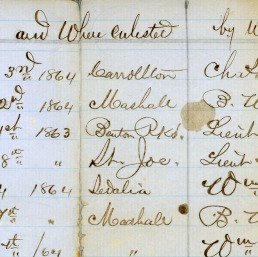 and Where enlisted by W
3rd 1864 Carrollton Ch
2d 1864 Marshall B.
1st 1863 Benton Bks. Lieut
8th " St. Joe. Lieut
4 1864 Sedalia Wm
7th " Marshall B.
th /64 " Wm